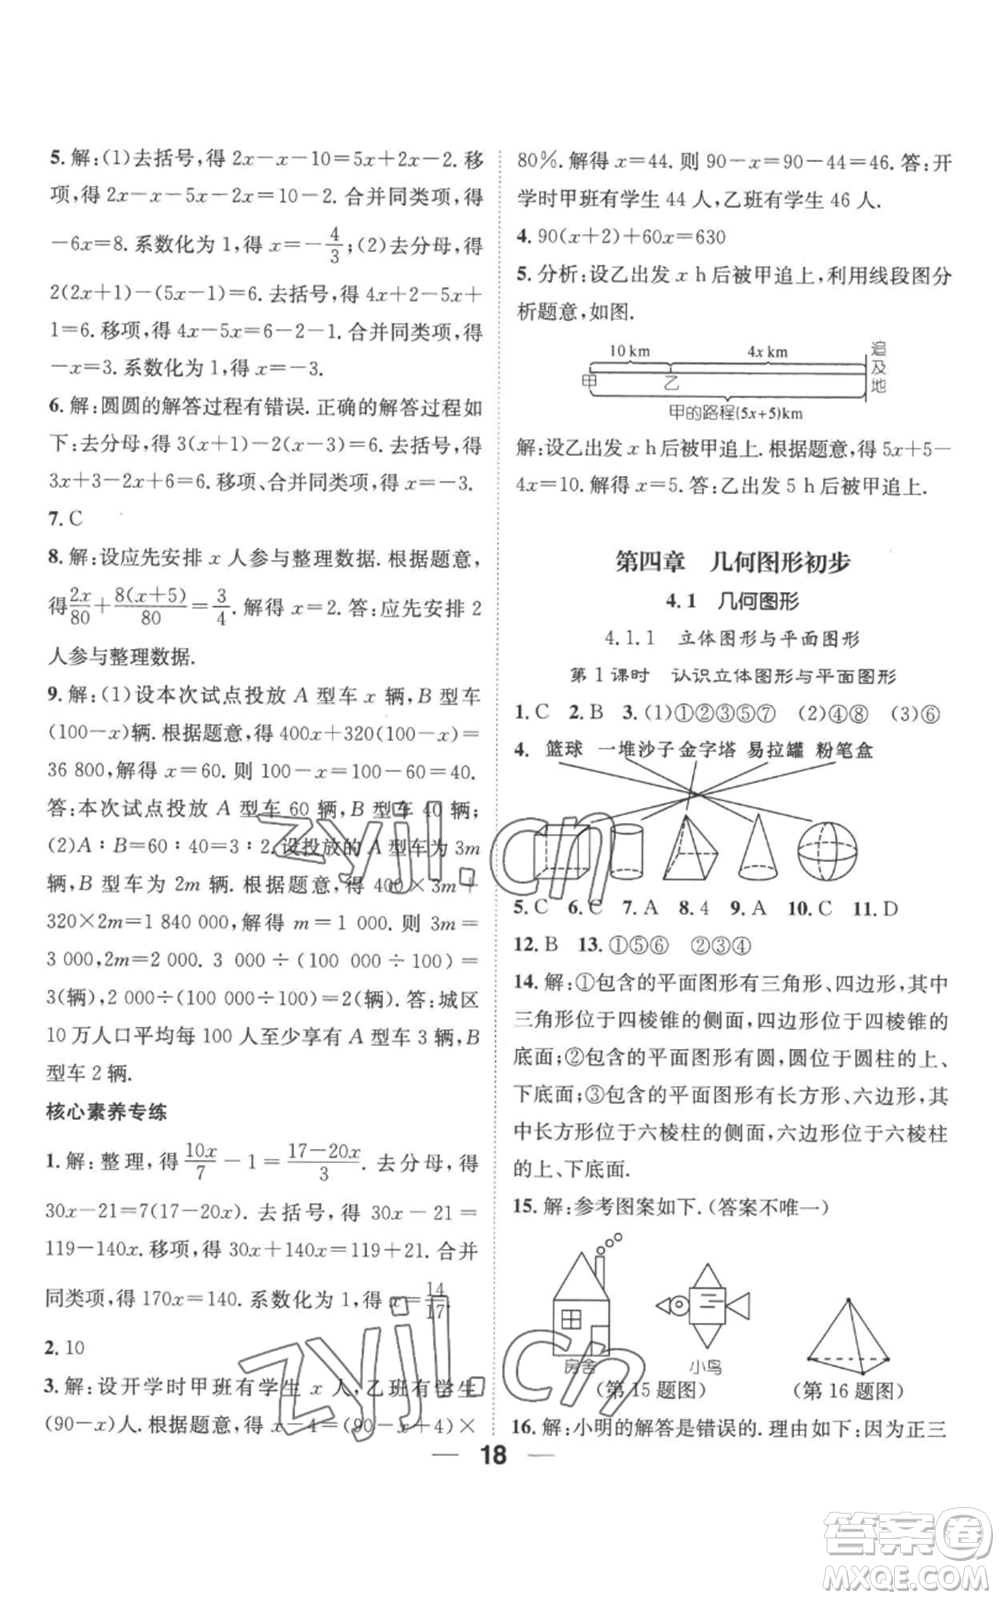 5. 解:(1)去括号,得 2x－x－10＝5x＋2x－2. 移
项,得 2x－x－5x－2x＝10－2. 合并同类项,得
－6x＝8. 系数化为 1,得 x＝－4/3;(2)去分母,得
2(2x＋1)－(5x－1)＝6. 去括号,得 4x＋2－5x＋
1＝6. 移项,得 4x－5x＝6－2－1. 合并同类项,得
－x＝3. 系数化为 1,得 x＝－3.
6. 解:圆圆的解答过程有错误. 正确的解答过程如
下:去分母,得 3(x＋1)－2(x－3)＝6. 去括号,得
3x＋3－2x＋6＝6. 移项、合并同类项,得 x＝－3.
7. C
8. 解:设应先安排 x 人参与整理数据. 根据题意,
得2x/80＋8(x＋5)/80＝3/4. 解得 x＝2. 答:应先安排 2
人参与整理数据.
9. 解:(1)设本次试点投放 A 型车 x 辆,B 型车
(100－x)辆. 根据题意,得 400x＋320(100－x)＝
36 800,解得 x＝60. 则 100－x＝100－60＝40.
答:本次试点投放 A 型车 60 辆,B 型车 40 辆;
(2)A∶B＝60∶40＝3∶2. 设投放的 A 型车为 3m
辆,B 型车为 2m 辆. 根据题意,得 400×3m＋
320×2m＝1 840 000,解得 m＝1 000. 则 3m＝
3 000,2m＝2 000. 3 000÷(100 000÷100)＝
3(辆). 2 000÷(100 000÷100)＝2(辆). 答:城区
10 万人口平均每 100 人至少享有 A 型车 3 辆,B
型车 2 辆.
核心素养专练
1. 解:整理,得10x/7－1＝17－20x/3. 去分母,得
30x－21＝7(17－20x). 去括号,得 30x－21＝
119－140x. 移项,得 30x＋140x＝119＋21. 合并
同类项,得 170x＝140. 系数化为 1,得 x＝14/17.
2. 10
3. 解:设开学时甲班有学生 x 人,乙班有学生
(90－x)人. 根据题意,得 x－4＝(90－x＋4)×
80%. 解得 x＝44. 则 90－x＝90－44＝46. 答:开
学时甲班有学生 44 人,乙班有学生 46 人.
4. 90(x＋2)＋60x＝630
5. 分析:设乙出发 x h后被甲追上,利用线段图分
析题意,如图.
10 km 4x km
甲 乙 追及地
甲的路程(5x＋5)km
解:设乙出发 x h后被甲追上. 根据题意,得 5x＋5－
4x＝10. 解得 x＝5. 答:乙出发 5 h后被甲追上.
第四章 几何图形初步
4.1 几何图形
4.1.1 立体图形与平面图形
第 1 课时 认识立体图形与平面图形
1. C 2. B 3. (1)①②③⑤⑦ (2)④⑧ (3)⑥
4. 篮球 一堆沙子 金字塔 易拉罐 粉笔盒
5. C 6. C 7. A 8. 4 9. A 10. C 11. D
12. B 13. ①⑤⑥ ②③④
14. 解:①包含的平面图形有三角形、四边形,其中
三角形位于四棱锥的侧面,四边形位于四棱锥的
底面;②包含的平面图形有圆,圆位于圆柱的上、
下底面;③包含的平面图形有长方形、六边形,其
中长方形位于六棱柱的侧面,六边形位于六棱柱
的上、下底面.
15. 解:参考图案如下.(答案不唯一)
房舍 小鸟
(第 15 题图) (第 16 题图)
16. 解:小明的解答是错误的. 理由如下:因为正三
18
zyjl.cn
zyjl.cn
答案卷
MXQE.COM